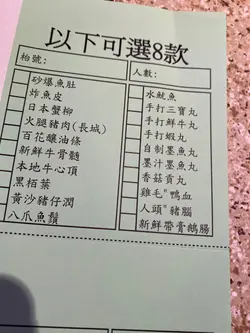 以下可選8款
枱號：
人數：
砂爆魚肚
炸魚皮
日本蟹柳
火腿豬肉(長城)
百花釀油條
新鮮牛骨髓
本地牛心頂
黑栢葉
黃沙豬仔潤
八爪魚鬚
水魷魚
手打三寶丸
手打鮮牛丸
手打蝦丸
自制墨魚丸
墨汁墨魚丸
香菇貢丸
雞毛"鴨血
人頭"豬腦
新鮮帶膏鵝腸